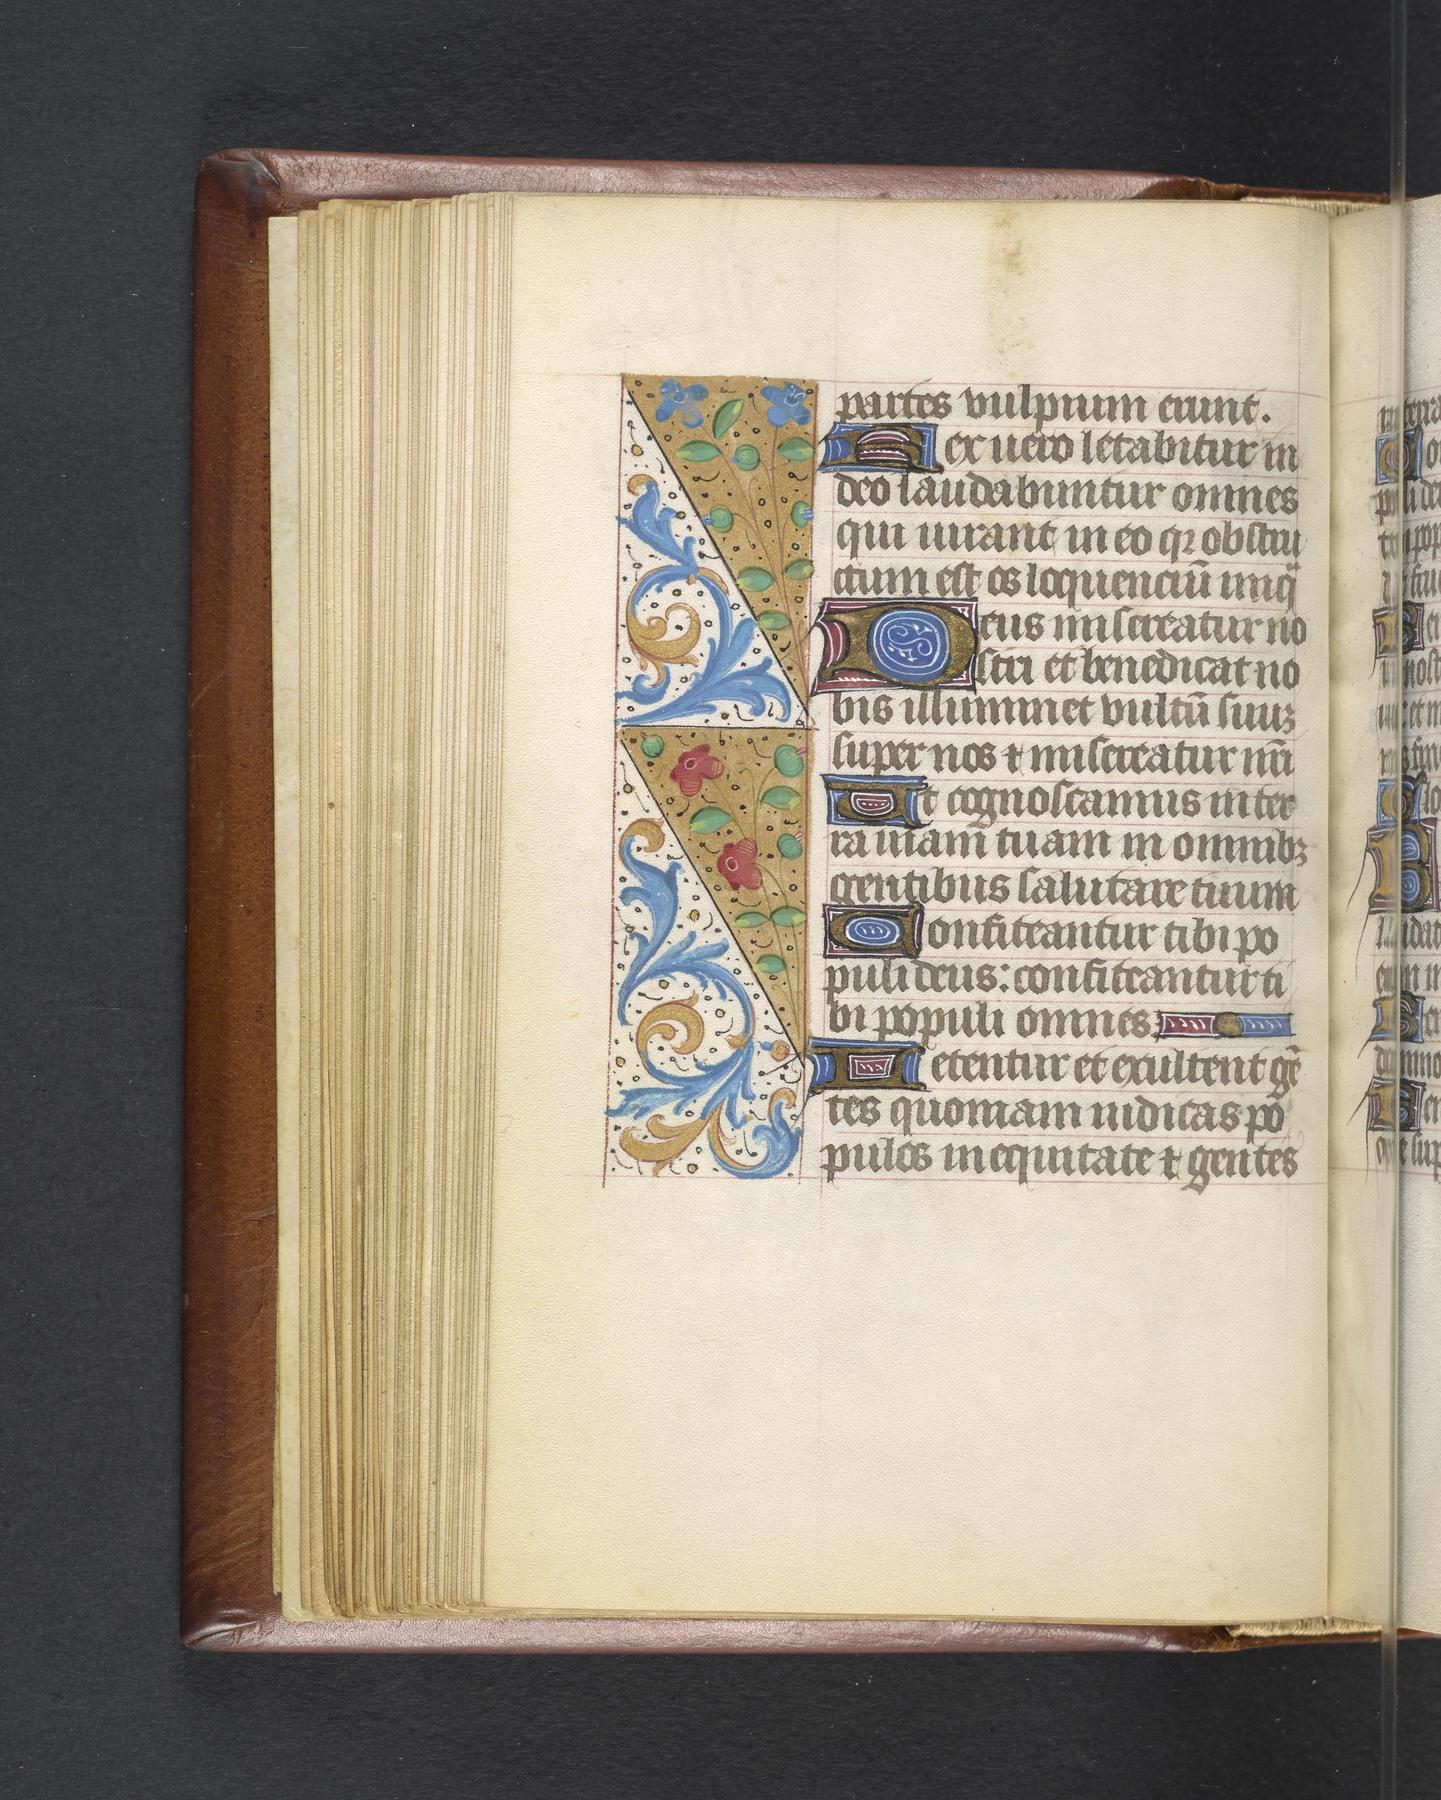 partes vulpium erunt.
Rex uero letabitur in
deo laudabuntur omnes
qui iurant in eo qꝛ obstru
ctum est os loquenciū iniq̄
Deus misereatur no
stri et benedicat no
bis illuminet vultū suuꝫ
super nos ⁊ misereatur nr̄i
Et cognoscamus in ter
ra uiam tuam in omnibꝫ
gentibus salutare tuum
Confiteantur tibi po
puli deus: confiteantur ti
bi populi omnes.
Letentur et exultent gē
tes quoniam iudicas po
pulos in equitate ⁊ gentes